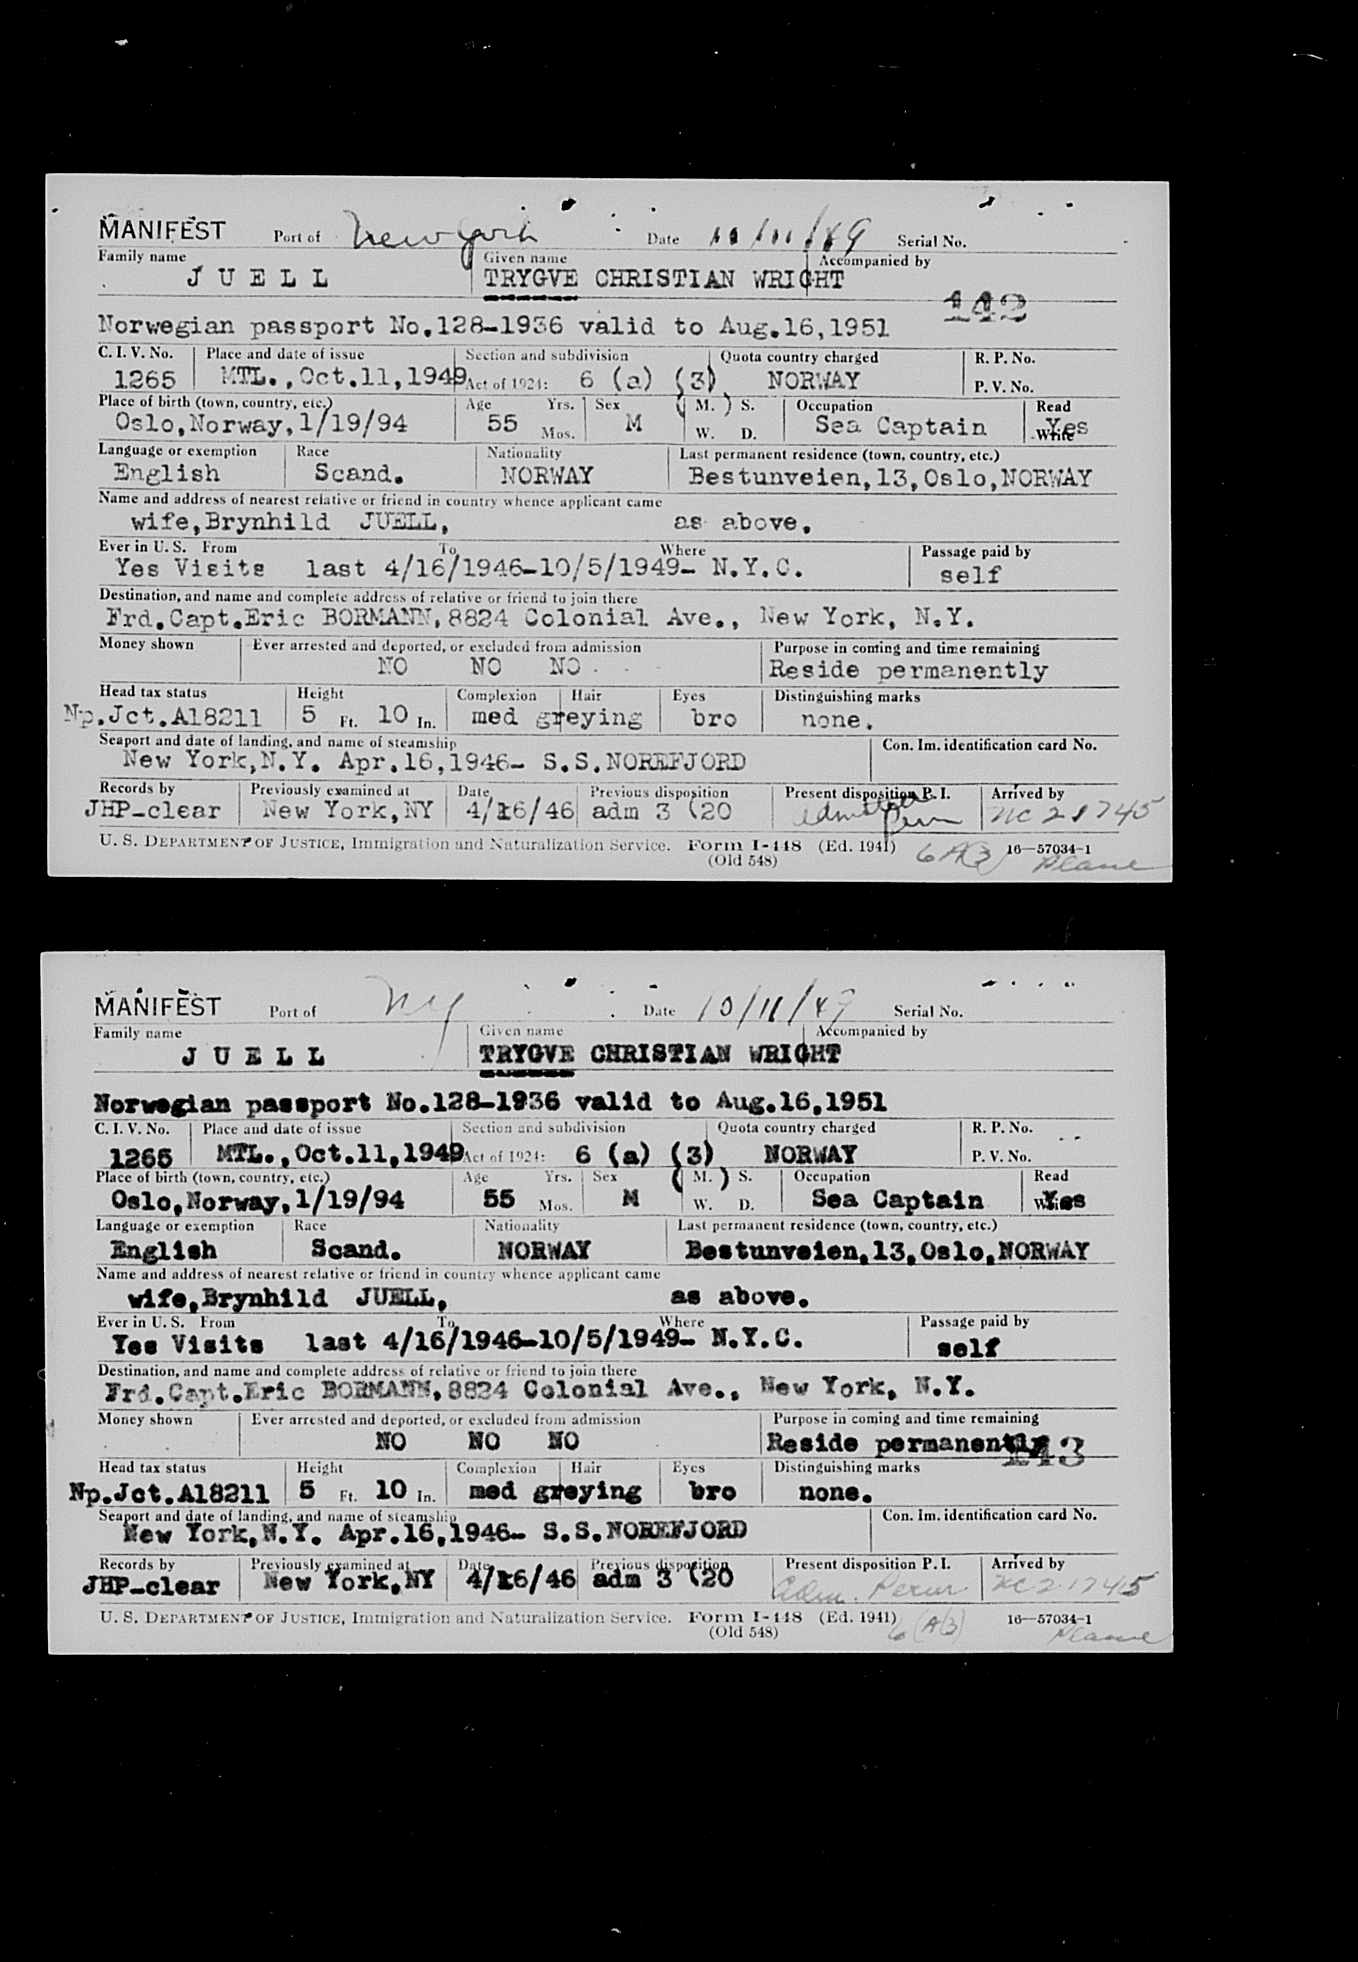 MANIFEST Port of New York Date 10/11/49 Serial No.
Family name Given name Accompanied by
J U E L L TRYGVE CHRISTIAN WRIGHT
142
Norwegian passport No.128-1936 valid to Aug.16,1951
C. I. V. No. Place and date of issue Section and subdivision Quota country charged R. P. No.
1265 MTL.,Oct.11,1949 Act of 1924: 6 (a) (3) NORWAY P. V. No.
Place of birth (town, country, etc.) Age Yrs. Sex (M.) S. Occupation Read
Oslo,Norway,1/19/94 55 Mos. M W. D. Sea Captain Write Yes
Language or exemption Race Nationality Last permanent residence (town, country, etc.)
English Scand. NORWAY Bestunveien,13,Oslo,NORWAY
Name and address of nearest relative or friend in country whence applicant came
wife,Brynhild JUELL, as above.
Ever in U. S. From To Where Passage paid by
Yes Visits last 4/16/1946-10/5/1949- N.Y.C. self
Destination, and name and complete address of relative or friend to join there
Frd.Capt.Eric BORMANN,8824 Colonial Ave., New York, N.Y.
Money shown Ever arrested and deported, or excluded from admission Purpose in coming and time remaining
NO NO NO Reside permanently
Head tax status Height Complexion Hair Eyes Distinguishing marks
Np.Jct.A18211 5 Ft. 10 In. med greying bro none.
Seaport and date of landing, and name of steamship Con. Im. identification card No.
New York,N.Y. Apr.16,1946- S.S.NOREFJORD
Records by Previously examined at Date Previous disposition Present disposition P. I. Arrived by
JHP-clear New York,NY 4/16/46 adm 3 (20 admitted Perm NC 21745
U. S. DEPARTMENT OF JUSTICE, Immigration and Naturalization Service. Form I-448 (Ed. 1941) 6A(3) 16—57034-1 Plane
(Old 548)
MANIFEST Port of NY Date 10/11/49 Serial No.
Family name Given name Accompanied by
J U E L L TRYGVE CHRISTIAN WRIGHT
Norwegian passport No.128-1936 valid to Aug.16,1951
C. I. V. No. Place and date of issue Section and subdivision Quota country charged R. P. No.
1265 MTL.,Oct.11,1949 Act of 1924: 6 (a) (3) NORWAY P. V. No.
Place of birth (town, country, etc.) Age Yrs. Sex (M.) S. Occupation Read
Oslo,Norway,1/19/94 55 Mos. M W. D. Sea Captain Yes
Language or exemption Race Nationality Last permanent residence (town, country, etc.)
English Scand. NORWAY Bestunveien,13,Oslo,NORWAY
Name and address of nearest relative or friend in country whence applicant came
wife,Brynhild JUELL, as above.
Ever in U. S. From To Where Passage paid by
Yes Visits last 4/16/1946-10/5/1949- N.Y.C. self
Destination, and name and complete address of relative or friend to join there
Frd.Capt.Eric BORMANN,8824 Colonial Ave., New York, N.Y.
Money shown Ever arrested and deported, or excluded from admission Purpose in coming and time remaining
NO NO NO Reside permanently 143
Head tax status Height Complexion Hair Eyes Distinguishing marks
Np.Jct.A18211 5 Ft. 10 In. med greying bro none.
Seaport and date of landing, and name of steamship Con. Im. identification card No.
New York,N.Y. Apr.16,1946- S.S.NOREFJORD
Records by Previously examined at Date Previous disposition Present disposition P. I. Arrived by
JHP-clear New York,NY 4/16/46 adm 3 (20 adm. Perm NC 21745
U. S. DEPARTMENT OF JUSTICE, Immigration and Naturalization Service. Form I-448 (Ed. 1941) 6 (A)(3) 16—57034-1 Plane
(Old 548)